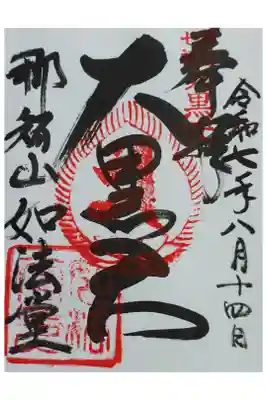 令和七年八月十四日
奉拝
大黒天
那智山如法堂